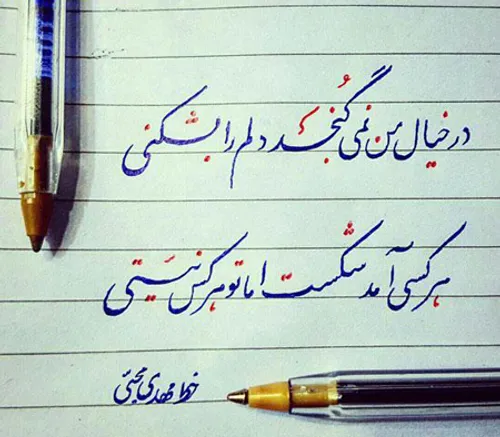 در خیال من نمی گنجد دلم را بشکنی
هر کسی آمد شکست اما تو هر کس نیستی
مهدی محبی